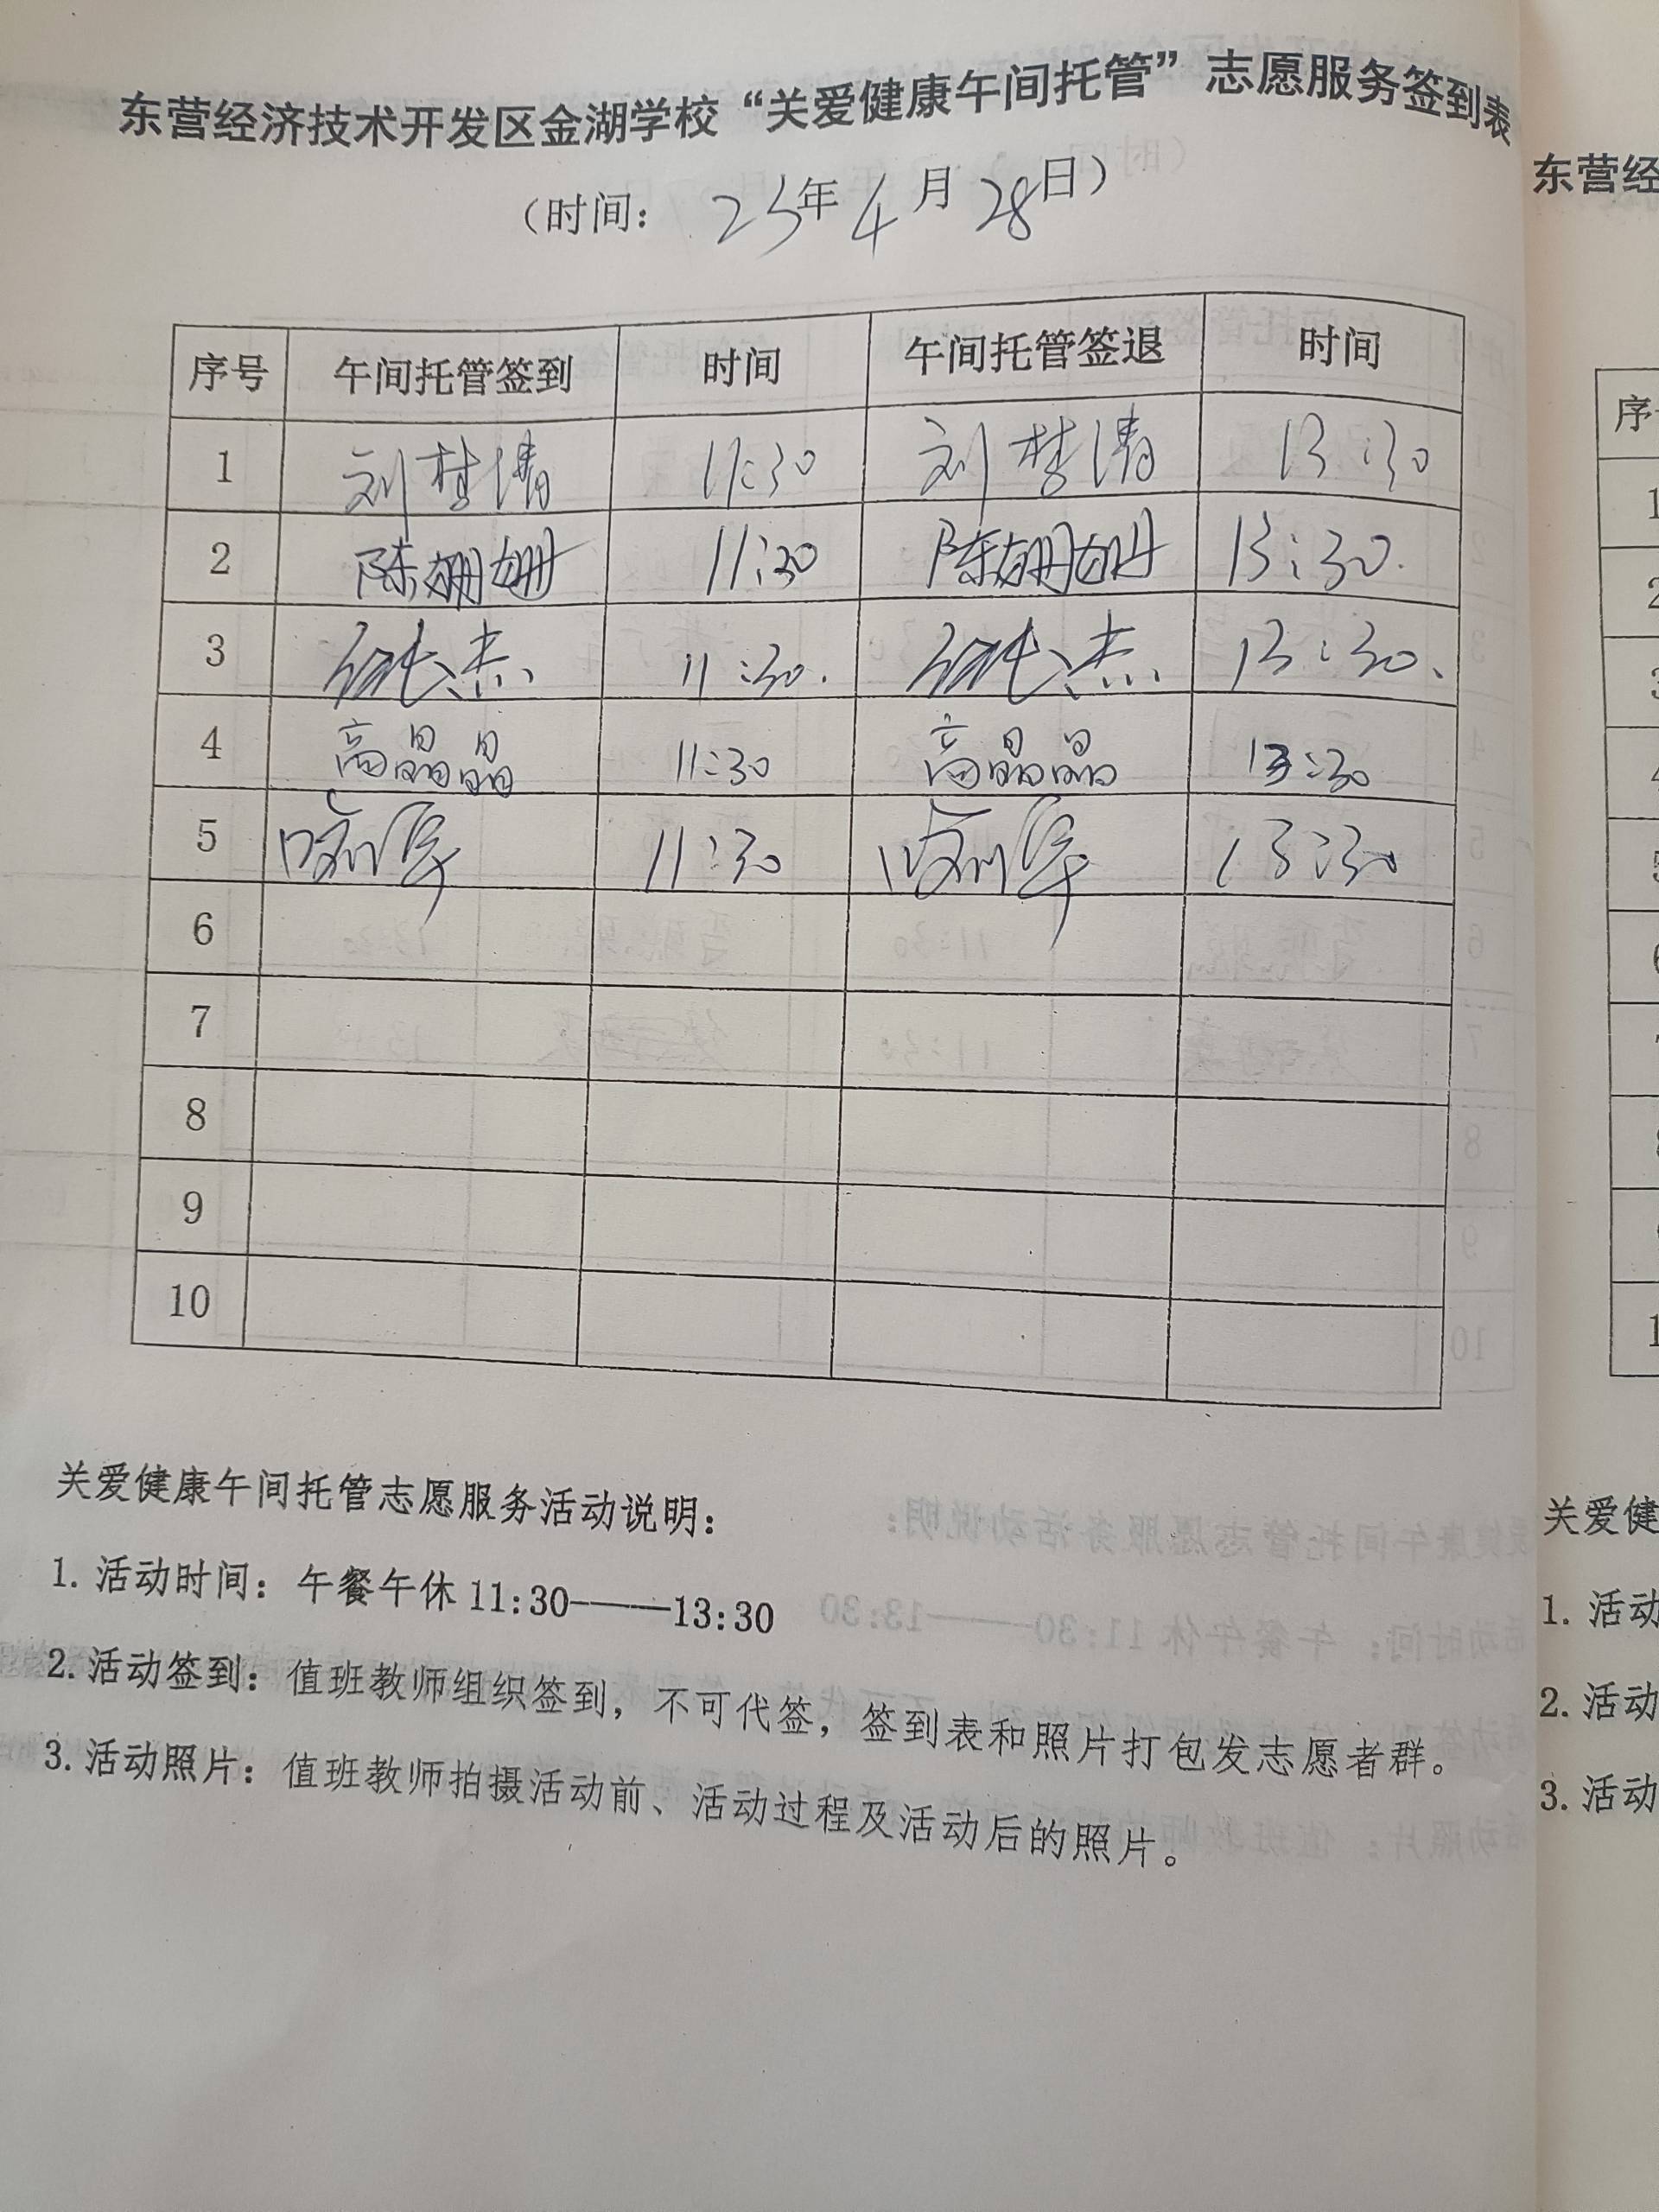 东营经济技术开发区金湖学校“关爱健康午间托管”志愿服务签到表
（时间： 25年4月28日）
序号 午间托管签到 时间 午间托管签退 时间
1 刘梦倩 11:30 刘梦倩 13:30
2 陈姗姗 11:30 陈姗姗 13:30.
3 11:30. 13:30.
4 高晶晶 11:30 高晶晶 13:30
5 11:30 13:30
6
7
8
9
10
关爱健康午间托管志愿服务活动说明：
1. 活动时间：午餐午休 11:30———13:30
2. 活动签到：值班教师组织签到，不可代签，签到表和照片打包发志愿者群。
3. 活动照片：值班教师拍摄活动前、活动过程及活动后的照片。
东营经
序
关爱健
1. 活动
2. 活动
3. 活动